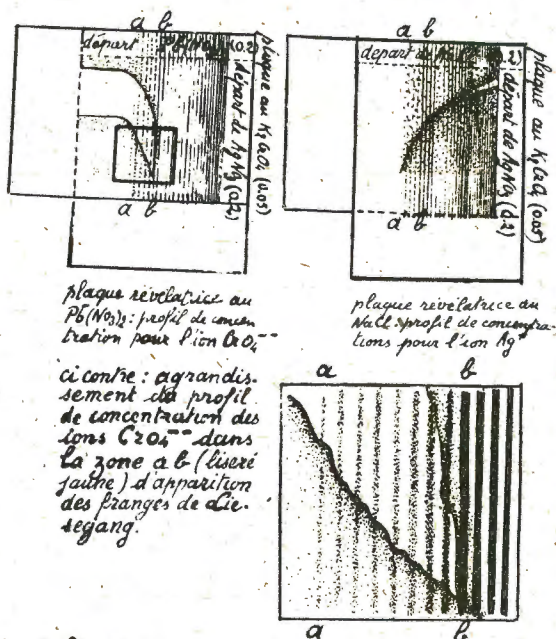 a b
départ
départ de AgNO3 (0.2)
plaque au K2CrO4 (0.05)
a b
plaque révélatrice au
Pb(NO3)2: profil de concen
tration pour l'ion CrO4--
a b
départ de
départ de AgNO3 (0.2)
plaque au K2CrO4 (0.05)
a b
plaque révélatrice au
NaCl: profil de concentra-
tions pour l'ion Ag+
ci contre: agrandis-
sement du profil
de concentration des
ions CrO4-- dans
la zone a b (liseré
jaune) d'apparition
des franges de Lie-
segang.
a b
a b